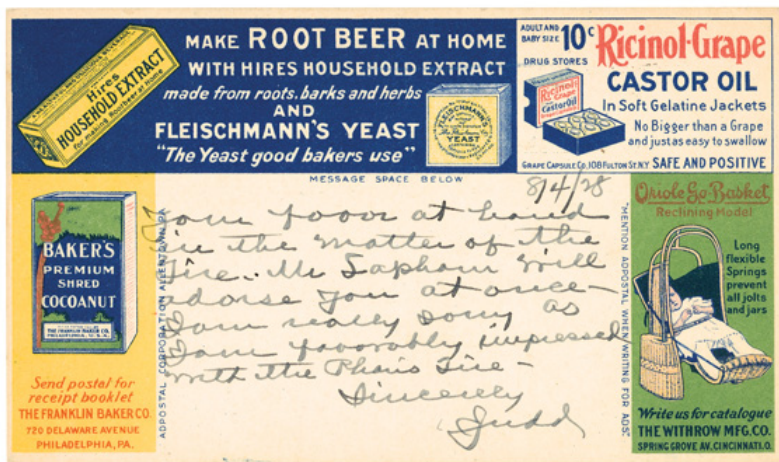 MAKE ROOT BEER AT HOME
WITH HIRES HOUSEHOLD EXTRACT
made from roots, barks and herbs
AND
FLEISCHMANN'S YEAST
"The Yeast good bakers use"
Hires
HOUSEHOLD EXTRACT
for making Rootbeer at home
FLEISCHMANN'S
YEAST
ADULT AND
BABY SIZE 10c
DRUG STORES
Ricinol-Grape
CASTOR OIL
In Soft Gelatine Jackets
No Bigger than a Grape
and just as easy to swallow
GRAPE CAPSULE CO. 108 FULTON ST. N.Y. SAFE AND POSITIVE
Ricinol
Grape
Castor Oil
MESSAGE SPACE BELOW
8/4/28
Your favor at hand
in the matter of the
Tire. Mr Lapham will
adorse you at once-
I am really sorry as
I am favorably impressed
with the Tire-
Sincerely
Judd
BAKER'S
PREMIUM
SHRED
COCOANUT
THE FRANKLIN BAKER CO.
PHILADELPHIA, U.S.A.
Send postal for
receipt booklet
THE FRANKLIN BAKER CO.
720 DELAWARE AVENUE
PHILADELPHIA, PA.
ADPOSTAL CORPORATION ALLENTOWN, PA
"MENTION ADPOSTAL WHEN WRITING FOR ADS"
Oriole Go-Basket
Reclining Model
Long
flexible
Springs
prevent
all jolts
and jars
Write us for catalogue
THE WITHROW MFG. CO.
SPRING GROVE AV. CINCINNATI. O.